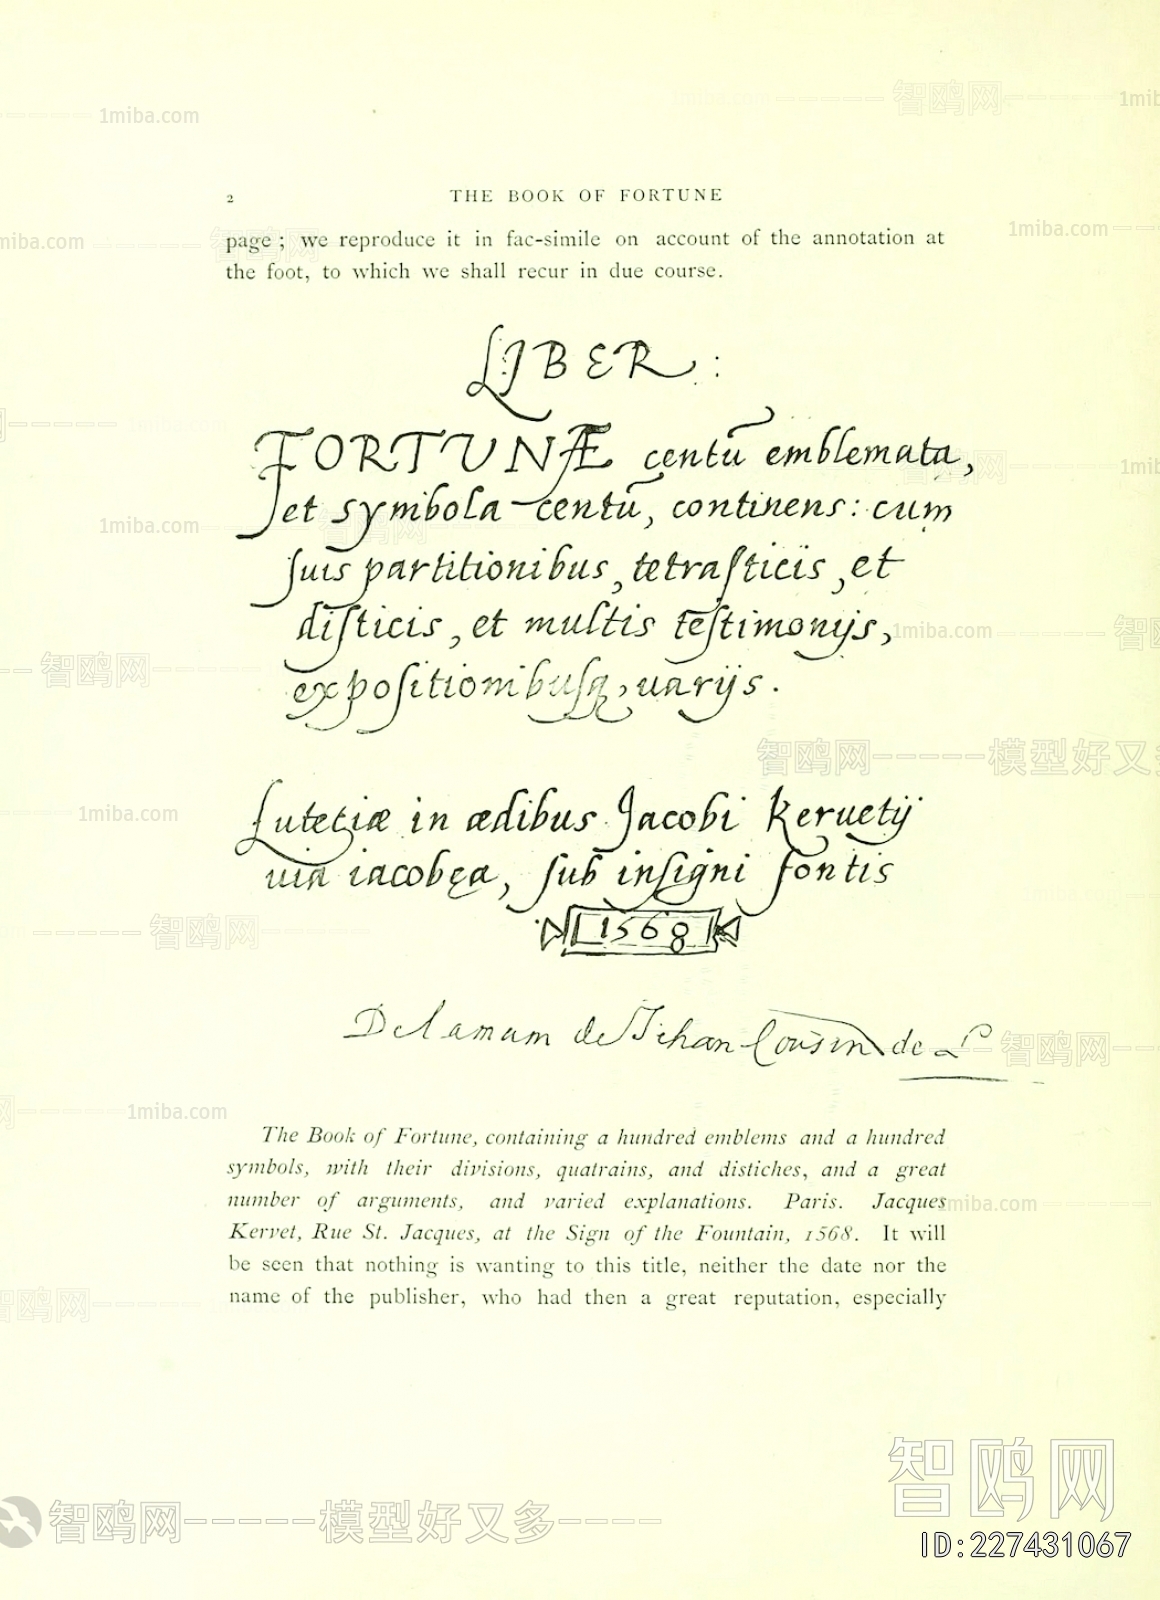 2 THE BOOK OF FORTUNE
page ; we reproduce it in fac-simile on account of the annotation at
the foot, to which we shall recur in due course.
LIBER :
FORTUNÆ centū emblemata,
et symbola centū, continens: cum
ſuis partitionibus, tetraſticis, et
diſticis, et multis teſtimonijs,
expoſitionibuſq, uarijs.
Lutetiæ in ædibus Jacobi Keruetij
uia iacobęa, ſub inſigni fontis
1568
De la mam de Jehan Cousin de L
The Book of Fortune, containing a hundred emblems and a hundred
symbols, with their divisions, quatrains, and distiches, and a great
number of arguments, and varied explanations. Paris. Jacques
Kervet, Rue St. Jacques, at the Sign of the Fountain, 1568. It will
be seen that nothing is wanting to this title, neither the date nor the
name of the publisher, who had then a great reputation, especially
智鸥网-----模型好又多----
智鸥网
ID:227431067
1miba.com